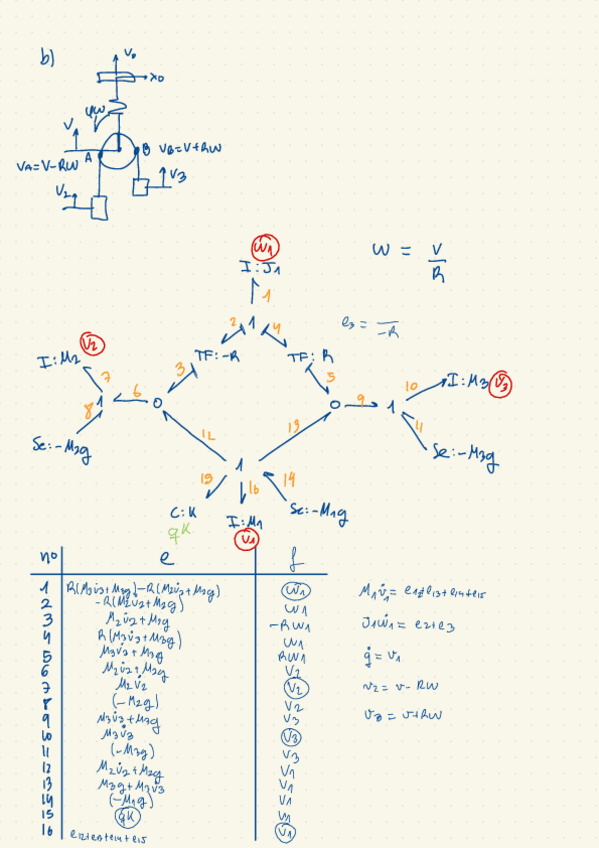 b)
V₀
x₀
φw
V
A
B
VA=V-Rω
VB=V+Rω
V₂
V₃
ω̇₁
I:J₁
ω = V/R
1
2
1
4
e₃ = /-R
TF:-R
TF:R
V̇₂
I:M₂
3
5
7
6
10
I:M₃
V̇₃
1
0
0
9
1
8
11
Se:-M₂g
Se:-M₃g
12
13
1
15
16
14
C:K
I:M₁
Se:-M₁g
qK
V̇₁
nº e f
1 R(M₃v̇₃+M₃g)-R(M₂v̇₂+M₂g) ω₁
2 -R(M₂v̇₂+M₂g) ω₁
3 M₂v̇₂+M₂g -Rω₁
4 R(M₃v̇₃+M₃g) ω₁
5 M₃v̇₃+M₃g Rω₁
6 M₂v̇₂+M₂g V₂
7 M₂v̇₂ V₂
8 (-M₂g) V₂
9 M₃v̇₃+M₃g V₃
10 M₃v̇₃ V₃
11 (-M₃g) V₃
12 M₂v̇₂+M₂g V₁
13 M₃g+M₃v̇₃ V₁
14 (-M₁g) V₁
15 qK V₁
16 e₁₂+e₁₃+e₁₄+e₁₅ V₁
M₁v̇₁= e₁₂+e₁₃+e₁₄+e₁₅
J₁ω̇₁= e₂+e₃
q̇ = v₁
v₂ = v - Rω
v₃ = v+Rω